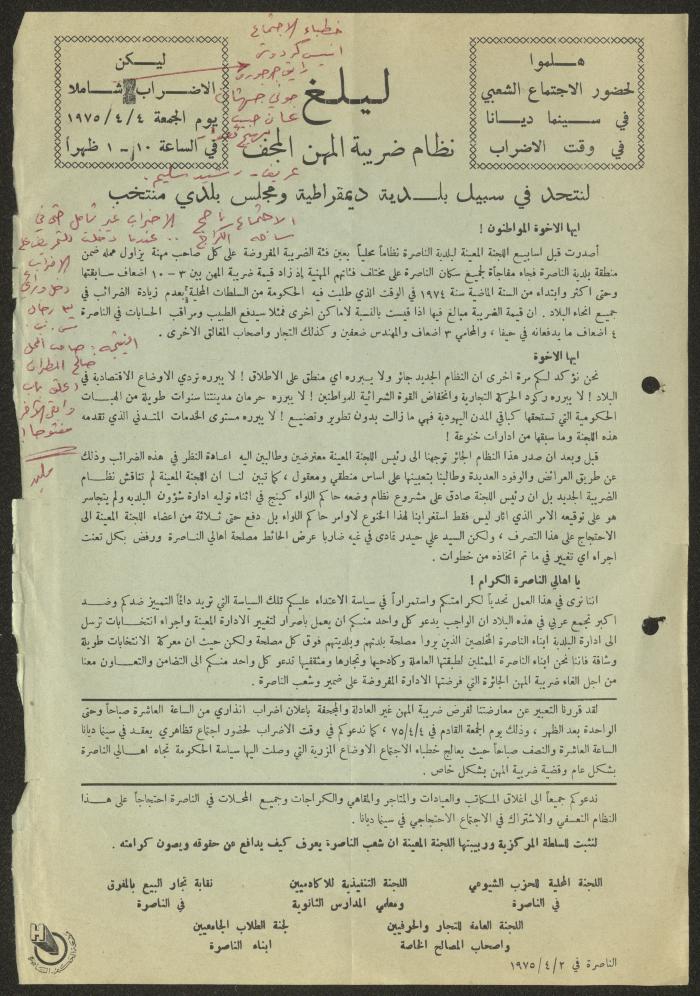 هلموا
لحضور الاجتماع الشعبي
في سينما ديانا
في وقت الاضراب
ليكن
الاضراب شاملا
يوم الجمعة ١٩٧٥/٤/٤
في الساعة ١٠ - ١ ظهرا
خطباء الاجتماع
انيس كردوش
ليلغ
نظام ضريبة المهن المجحف
لنتحد في سبيل بلدية ديمقراطية ومجلس بلدي منتخب
الاجتماع ناجح الاضراب غير شامل حتى في
ايها الاخوة المواطنون !
أصدرت قبل اسابيع اللجنة المعينة لبلدية الناصرة نظاماً محلياً يعين فئة الضريبة المفروضة على كل صاحب مهنة يزاول عمله ضمن
منطقة بلدية الناصرة فجاء مفاجأة لجميع سكان الناصرة على مختلف فئاتهم المهنية إذ زاد قيمة ضريبة المهن بين ٣ - ١٠ اضعاف سابقتها
وحتى اكثر وابتداء من السنة الماضية سنة ١٩٧٤ في الوقت الذي طلبت فيه الحكومة من السلطات المحلية بعدم زيادة الضرائب في
جميع انحاء البلاد . ان قيمة الضريبة مبالغ فيها اذا قيست بالنسبة لاماكن اخرى فمثلا سيدفع الطبيب ومراقب الحسابات في الناصرة
٤ اضعاف ما يدفعانه في حيفا ، والمحامي ٣ اضعاف والمهندس ضعفين وكذلك التجار واصحاب المغالق الاخرى .
ايها الاخوة
نحن نؤكد لكم مرة اخرى ان النظام الجديد جائر ولا يبرره اي منطق على الاطلاق ! لا يبرره تردي الاوضاع الاقتصادية في
البلاد ! لا يبرره ركود الحركة التجارية وانخفاض القوة الشرائية للمواطنين ! لا يبرره حرمان مدينتنا سنوات طويلة من الهبات
الحكومية التي تستحقها كباقي المدن اليهودية فهي ما زالت بدون تطوير وتصنيع ! لا يبرره مستوى الخدمات المتدني الذي تقدمه
هذه اللجنة وما سبقها من ادارات خنوعة !
قبل وبعد ان صدر هذا النظام الجائر توجهنا الى رئيس اللجنة المعينة معترضين وطالبين اليه اعادة النظر في هذه الضرائب وذلك
عن طريق العرائض والوفود العديدة وطالبنا بتعيينها على اساس منطقي ومعقول ، كما تبين لنا ان اللجنة المعينة لم تناقش نظام
الضريبة الجديد بل ان رئيس اللجنة صادق على مشروع نظام وضعه حاكم اللواء كينج في اثناء توليه ادارة شؤون البلديه ولم يتجاسر
هو على توقيعه الامر الذي اثار ليس فقط استغرابنا لهذا الخنوع لاوامر حاكم اللواء بل دفع حتى ثلاثة من اعضاء اللجنة المعينة الى
الاحتجاج على هذا التصرف ، ولكن السيد علي حيدر تمادى في غيه ضاربا عرض الحائط مصلحة اهالي الناصرة ورفض بكل تعنت
اجراء اي تغيير في ما تم اتخاذه من خطوات .
يا اهالي الناصرة الكرام !
اننا نرى في هذا العمل تحدياً لكرامتكم واستمراراً في سياسة الاعتداء عليكم تلك السياسة التي تريد دائماً التمييز ضدكم وضد
اكبر تجمع عربي في هذه البلاد ان الواجب يدعو كل واحد منكم ان يعمل باصرار لتغيير الادارة المعينة واجراء انتخابات ترسل
الى ادارة البلدية ابناء الناصرة المخلصين الذين يروا مصلحة بلدتهم وبلديتهم فوق كل مصلحة ولكن حيث ان معركة الانتخابات طويلة
وشاقة فاننا نحن ابناء الناصرة الممثلين لطبقتها العاملة وكادحيها وتجارها ومثقفيها ندعو كل واحد منكم الى التضامن والتعاون معنا
من اجل الغاء ضريبة المهن الجائرة التي فرضتها الادارة المفروضة على ضمير وشعب الناصرة .
لقد قررنا التعبير عن معارضتنا لفرض ضريبة المهن غير العادلة والمجحفة باعلان اضراب انذاري من الساعة العاشرة صباحاً وحتى
الواحدة بعد الظهر ، وذلك يوم الجمعة القادم في ٧٥/٤/٤ ، كما ندعوكم في وقت الاضراب لحضور اجتماع تظاهري يعقد في سينما ديانا
الساعة العاشرة والنصف صباحاً حيث يعالج خطباء الاجتماع الاوضاع المزرية التي وصلت اليها سياسة الحكومة تجاه اهالي الناصرة
بشكل عام وقضية ضريبة المهن بشكل خاص .
ندعوكم جميعاً الى اغلاق المكاتب والعيادات والمتاجر والمقاهي والكراجات وجميع المحلات في الناصرة احتجاجاً على هذا
النظام التعسفي والاشتراك في الاجتماع الاحتجاجي في سينما ديانا .
لنثبت للسلطة المركزية وربيبتها اللجنة المعينة ان شعب الناصرة يعرف كيف يدافع عن حقوقه ويصون كرامته .
اللجنة المحلية للحزب الشيوعي
في الناصرة
اللجنة التنفيذية للاكاديميين
ومعلمي المدارس الثانوية
نقابة تجار البيع بالمفرق
في الناصرة
اللجنة العامة للتجار والحرفيين
واصحاب المصالح الخاصة
لجنة الطلاب الجامعيين
ابناء الناصرة
الناصرة في ١٩٧٥/٤/٢